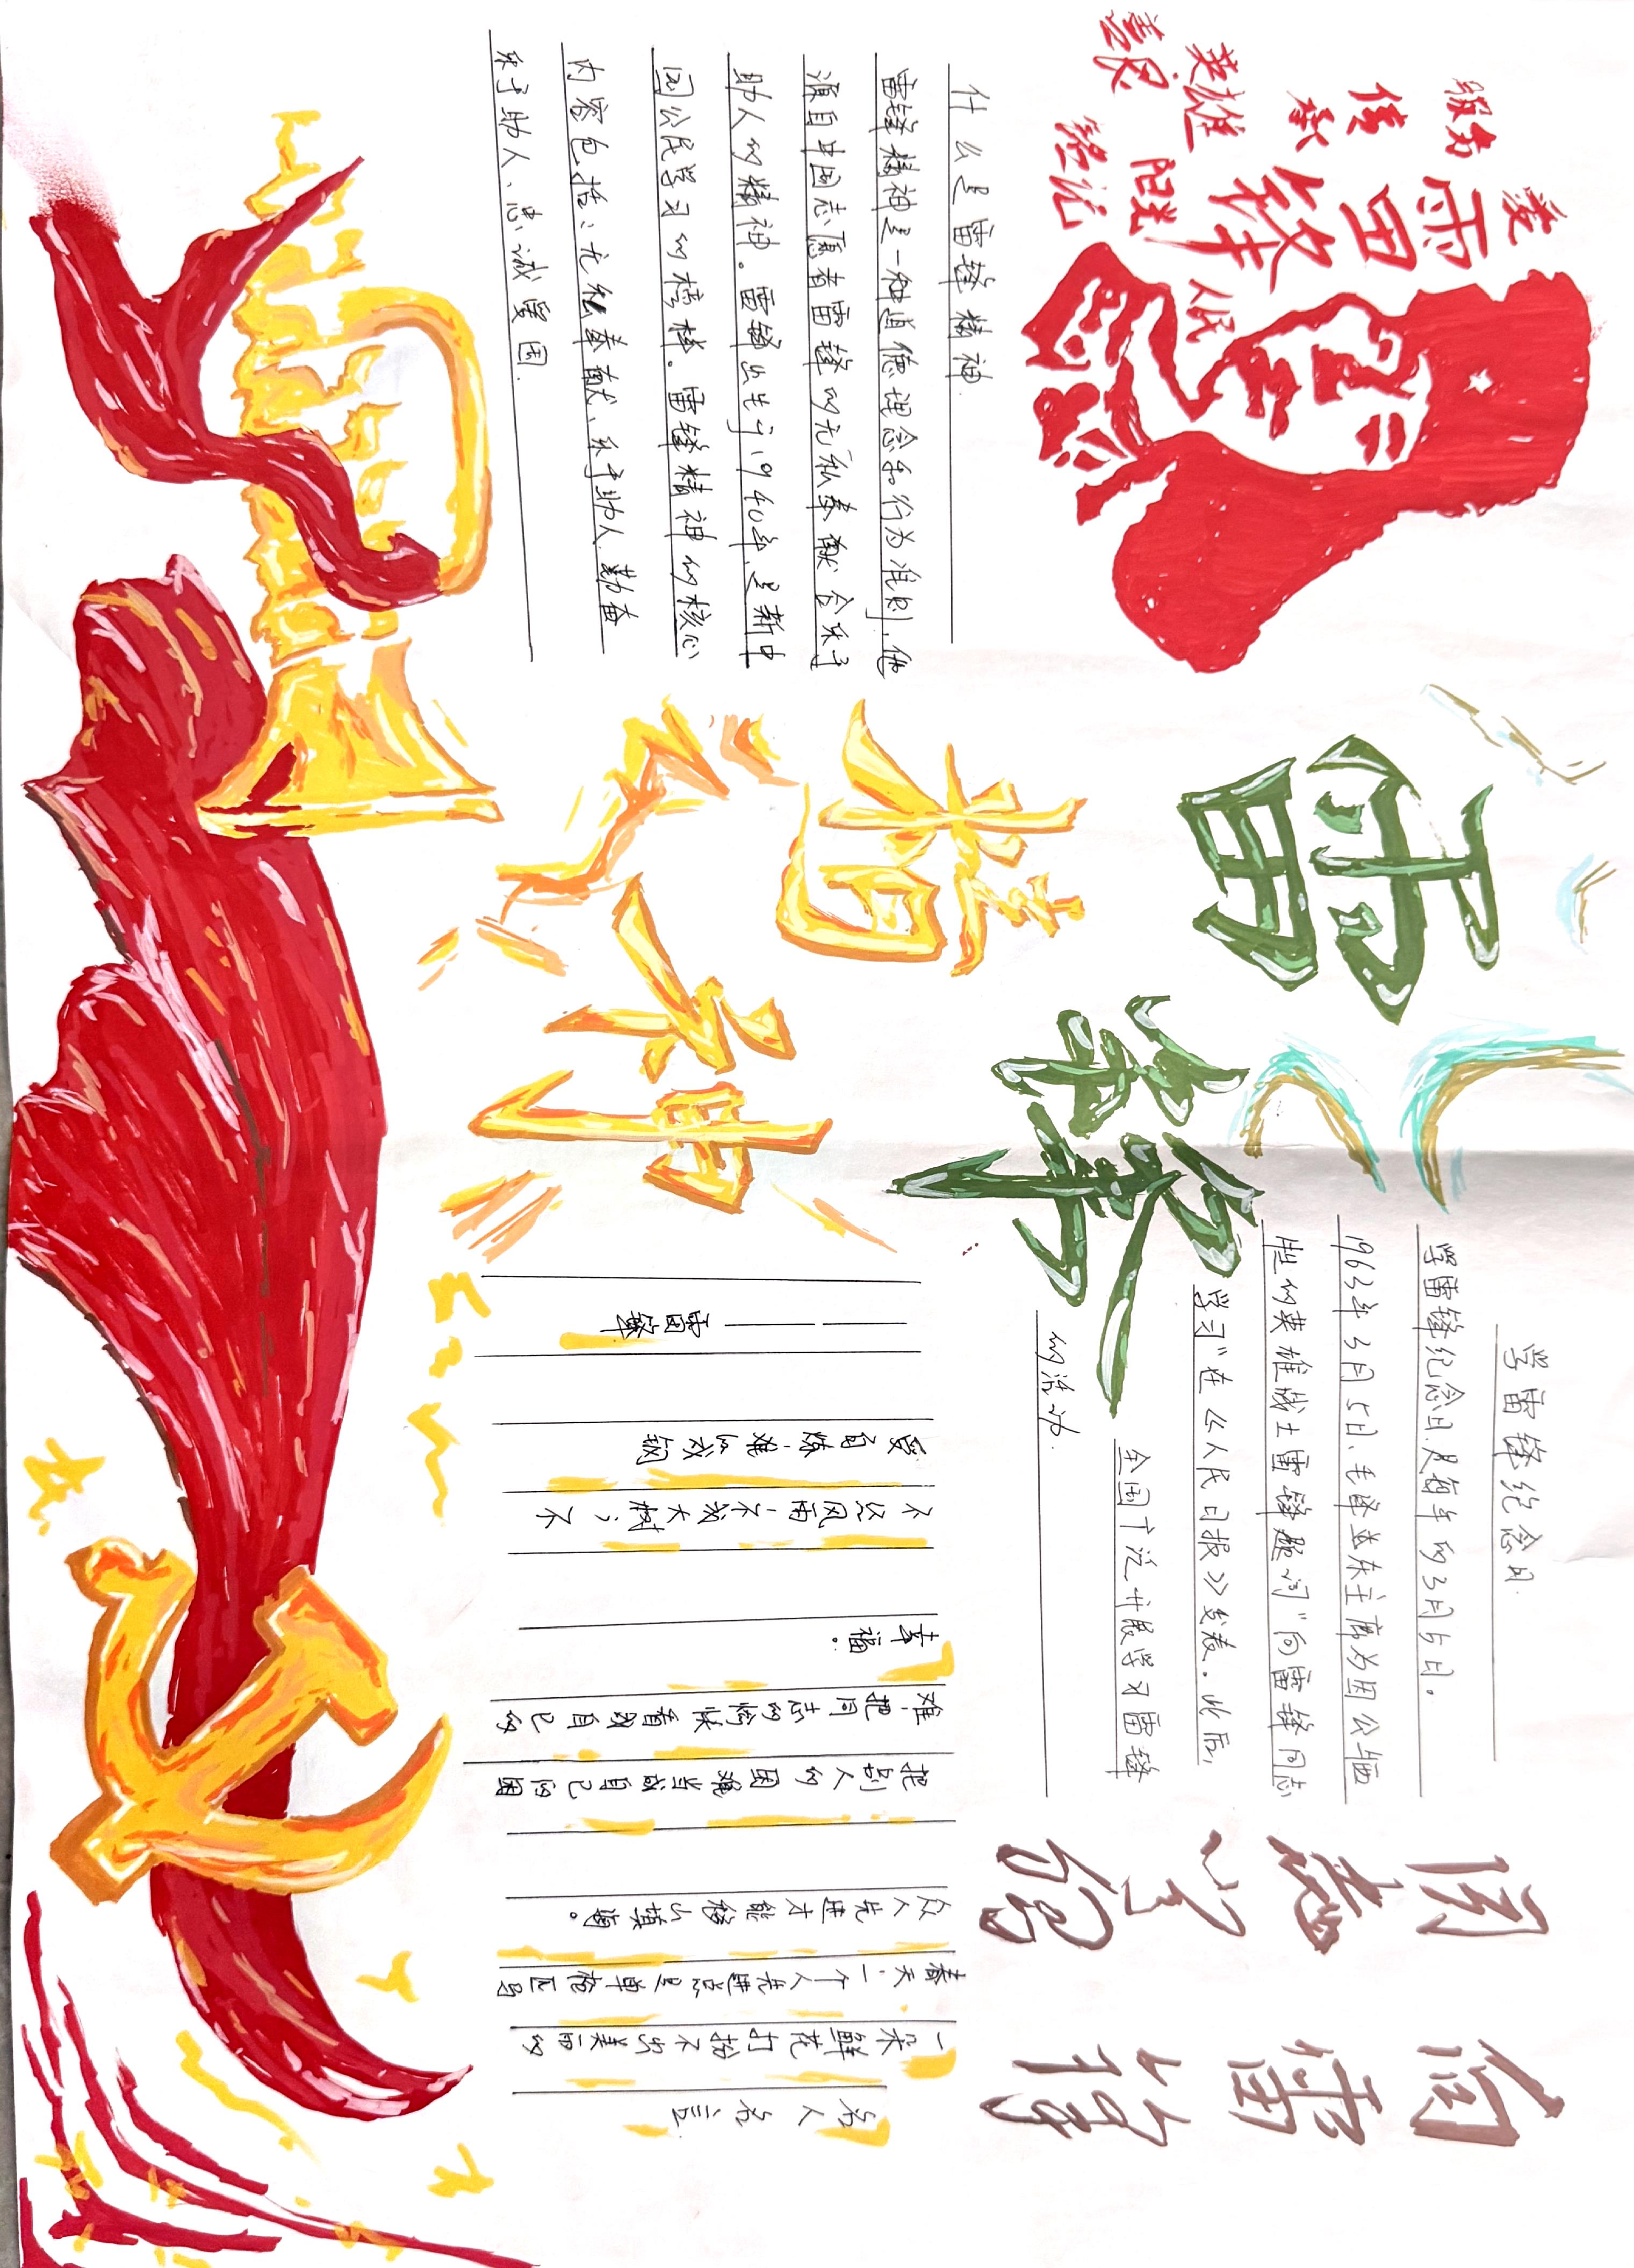 雷锋
服务
传承
英雄
人民
雷锋
精神
什么是雷锋精神
雷锋精神是一种道德理念和行为准则,他
源自中国志愿者雷锋的无私奉献舍乐于
助人的精神。雷锋出生于1940年,是新中
国公民学习的榜样。雷锋精神的核心
内容包括:无私奉献、乐于助人、勤奋
乐于助人、忠诚爱国.
学雷锋纪念日.
学雷锋纪念日,是每年的3月5日。
1963年3月5日、毛泽东主席为因公牺
牲的英雄战士雷锋题词"向雷锋同志
学习"在《人民日报》发表。此后,
全国广泛开展学习雷锋
的活动.
向雷锋
同志学习
名人名言
一朵鲜花打扮不出美丽的
春天,一个人先进总是单枪匹马
众人先进才能移山填海。
把别人的困难当成自己的困
难,把同志的愉快看成自己的
幸福。
不经风雨,不成大树;不
受百炼,难以成钢
——雷锋